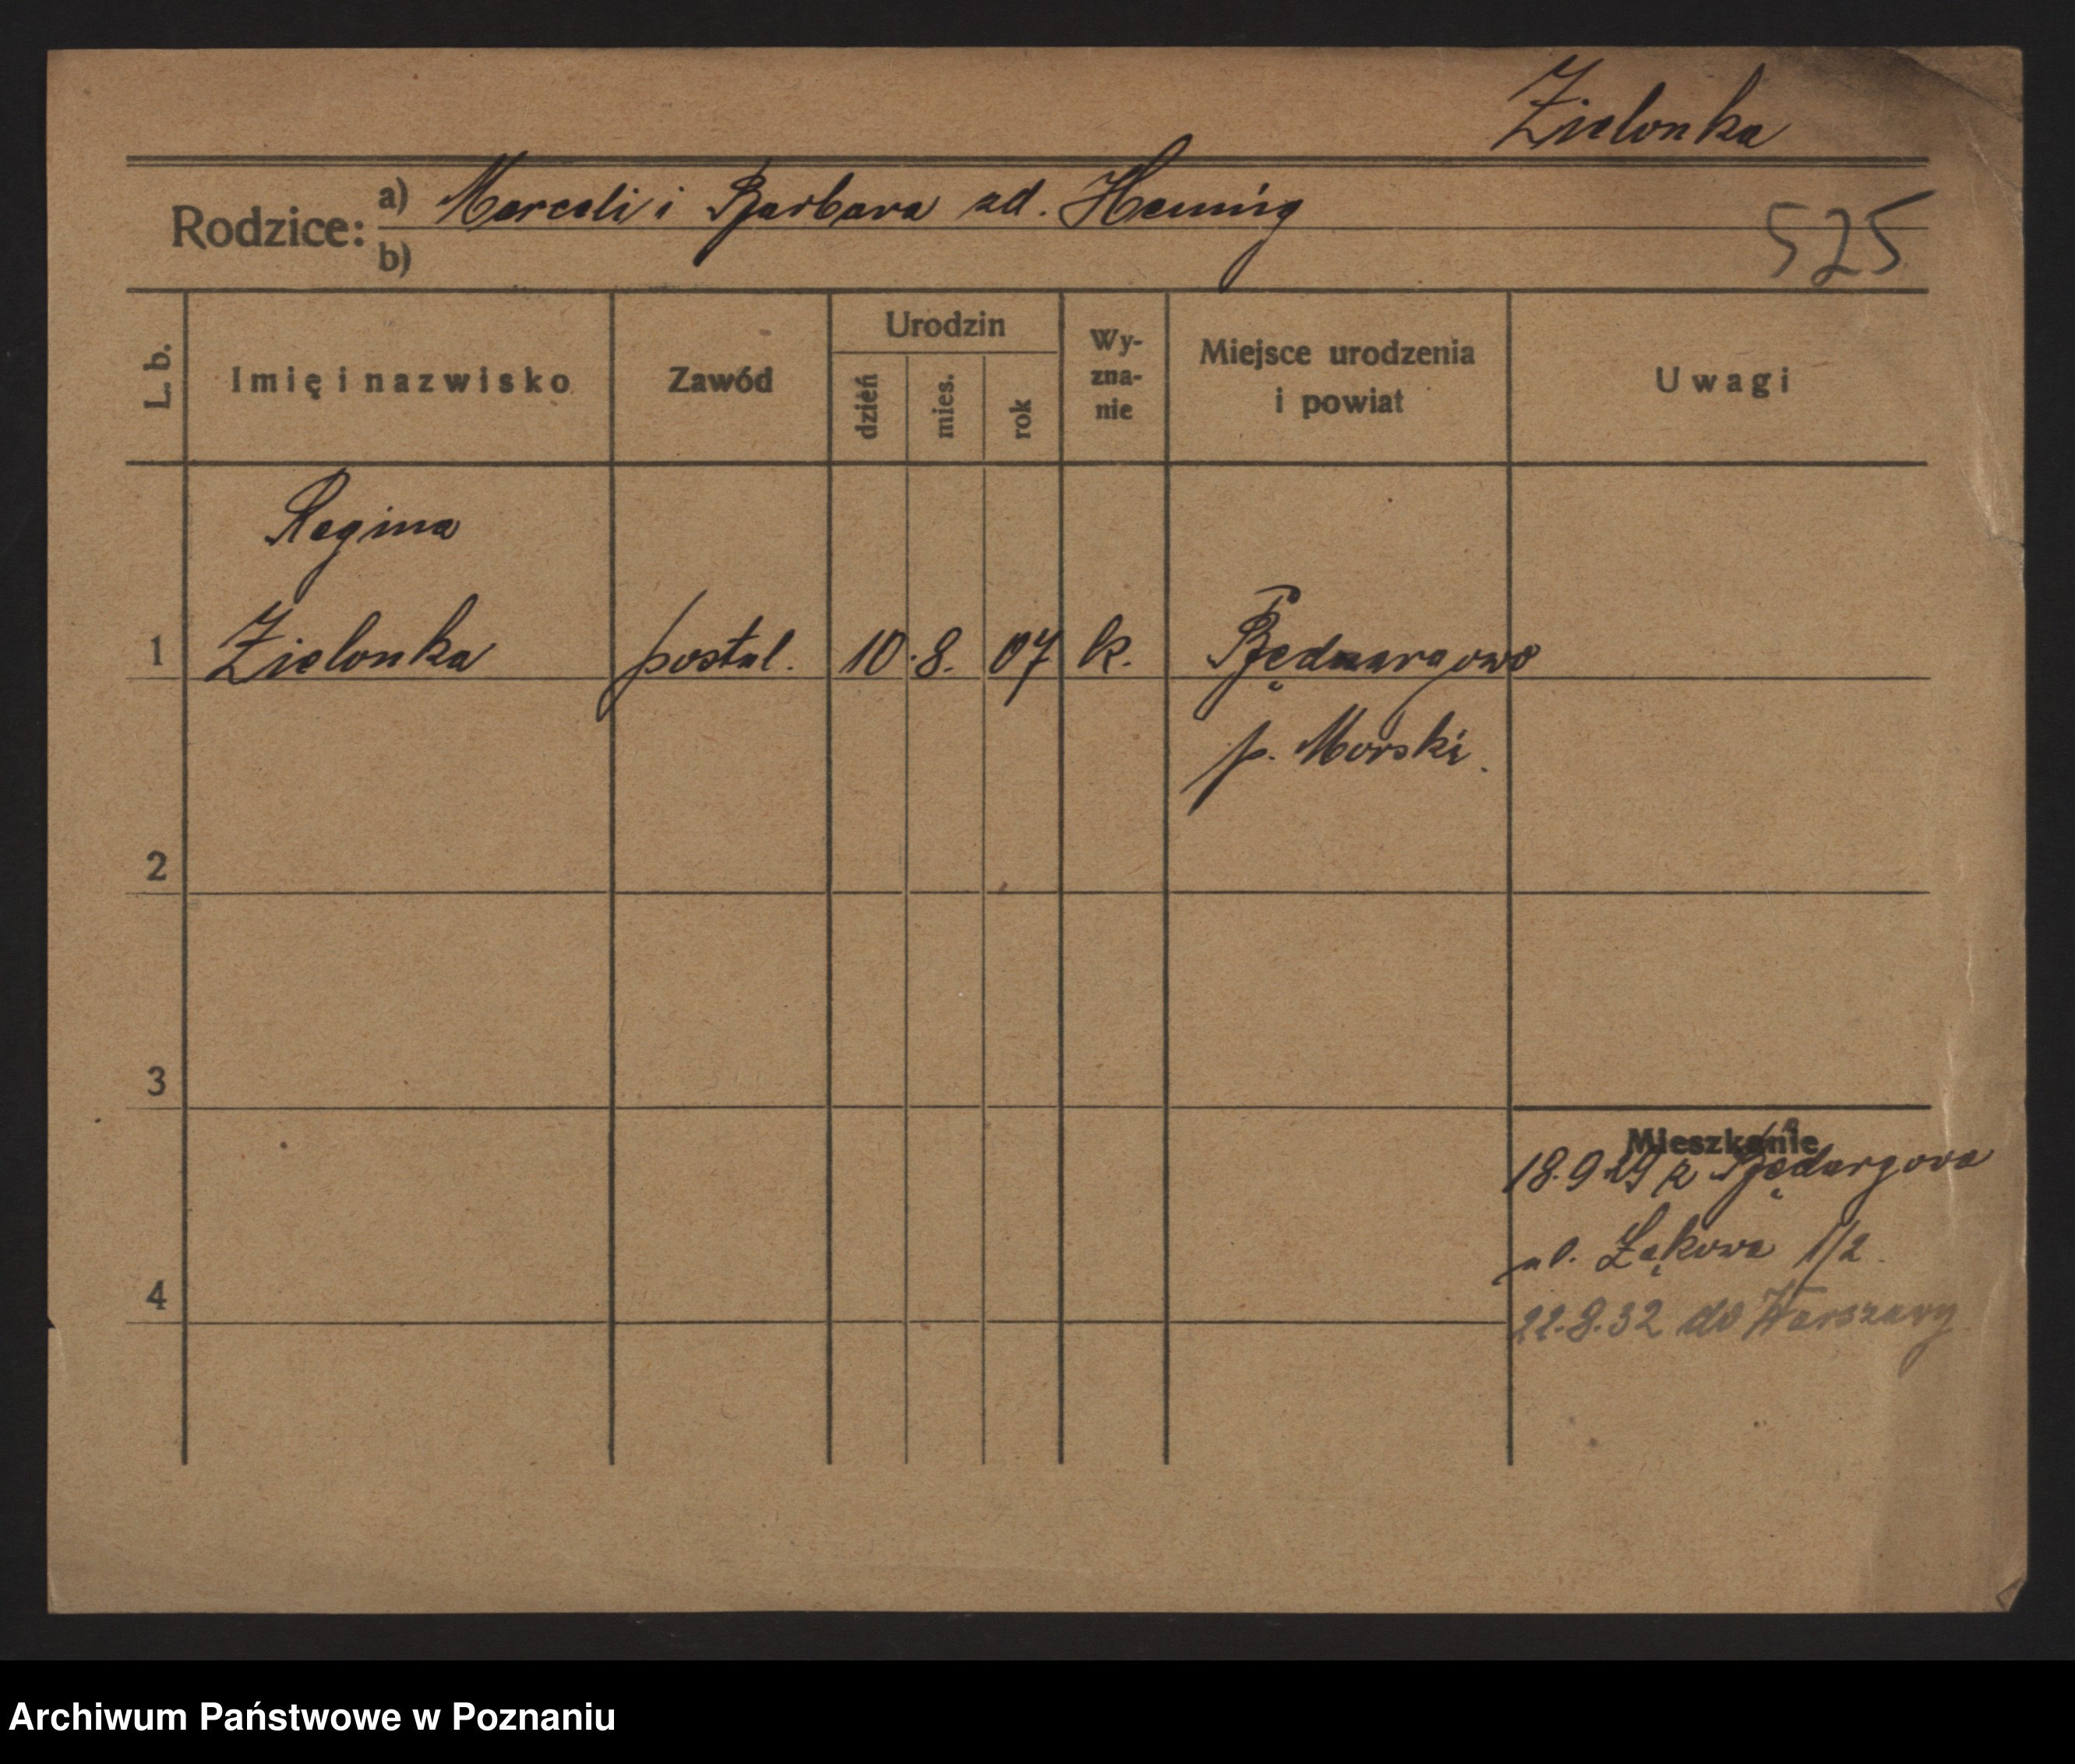 Zielonka
Rodzice: a) Marceli i Barbara zd. Hennig
b)
525
L. b.
Imię i nazwisko
Zawód
Urodzin
dzień
mies.
rok
Wy-
zna-
nie
Miejsce urodzenia
i powiat
Uwagi
Regina
1 Zielonka postul. 10. 8. 07 k.
p. Morski.
2
3
Mieszkanie
18.9 29 z Będargowa
ul. Łąkowa 1/2.
4
22.8.32 do Warszawy
Archiwum Państwowe w Poznaniu